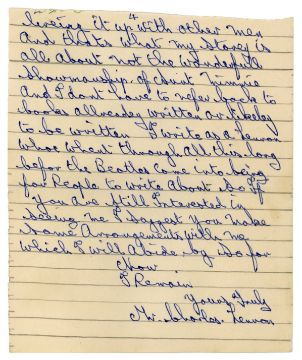 4
living it up with other men
And that's what my Storey is
all About not the Wonderfull
Showmanship of Aunt Mimie
And I don't have to refer back to
books allready written or likeley
to be written I write as a Lennon
whoe whent through All this long
befor the Beatles Came into being
for People to write About So if
You are Still Interested in
Seeing me I Sugest You make
Some Arrangements with me
which I will Abide by So for
Now
I Remain
Yours Truly
Mr. Charles. Lennon